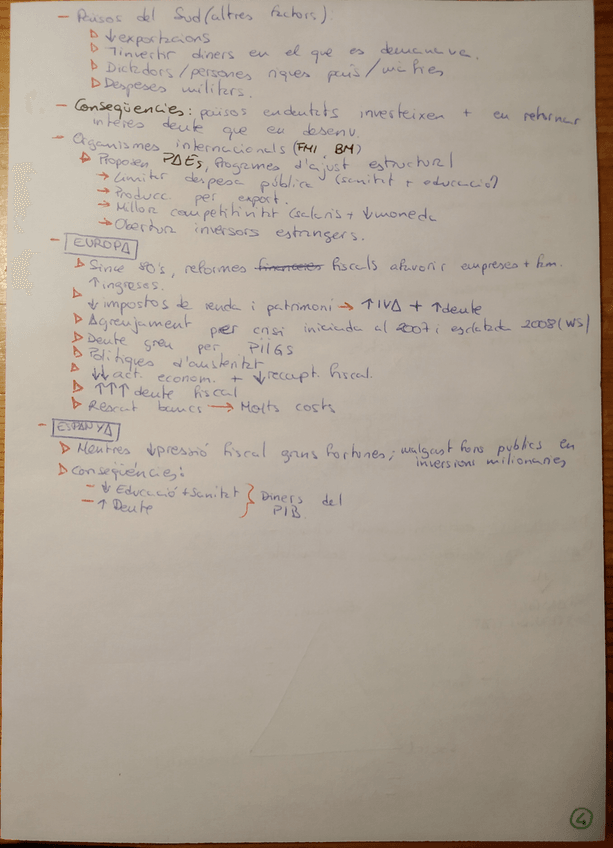 - Països del Sud (altres factors).
▷ ↓ exportacions
▷ Invertir diners en el que es demanava.
▷ Dictadors / persones riques país /
▷ Despeses militars.
- Conseqüències: països endeutats inverteixen + en retornar
interès deute que en desenv.
- Organismes internacionals (FMI, BM)
▷ Proposen PAEs, Programes d'ajust estructural
→ Limitar despesa pública (sanitat + educació)
→ Producc. per export.
→ Millor competitivitat (salaris + ↓ moneda
→ Obertura inversors estrangers.
- EUROPA
▷ Since 80's, reformes financeres fiscals afavorir empreses + fam.
↑ ingresos.
▷ ↓ impostos de renda i patrimoni → ↑ IVA + ↑ deute
▷ Agreujament per crisi iniciada al 2007 i esclatada 2008 (WS)
▷ Deute greu per PIIGS
▷ Polítiques d'austeritat
▷ ↓↓ act. econom. + ↓ recapt. fiscal.
▷ ↑↑↑ deute fiscal
▷ Rescat bancs → Molts costs
- ESPANYA
▷ Mentres ↓ pressió fiscal grans fortunes; malgast fons públics en
inversions milionaries
▷ Conseqüències:
- ↓ Educació + Sanitat } Diners del
- ↑ Deute PIB
4